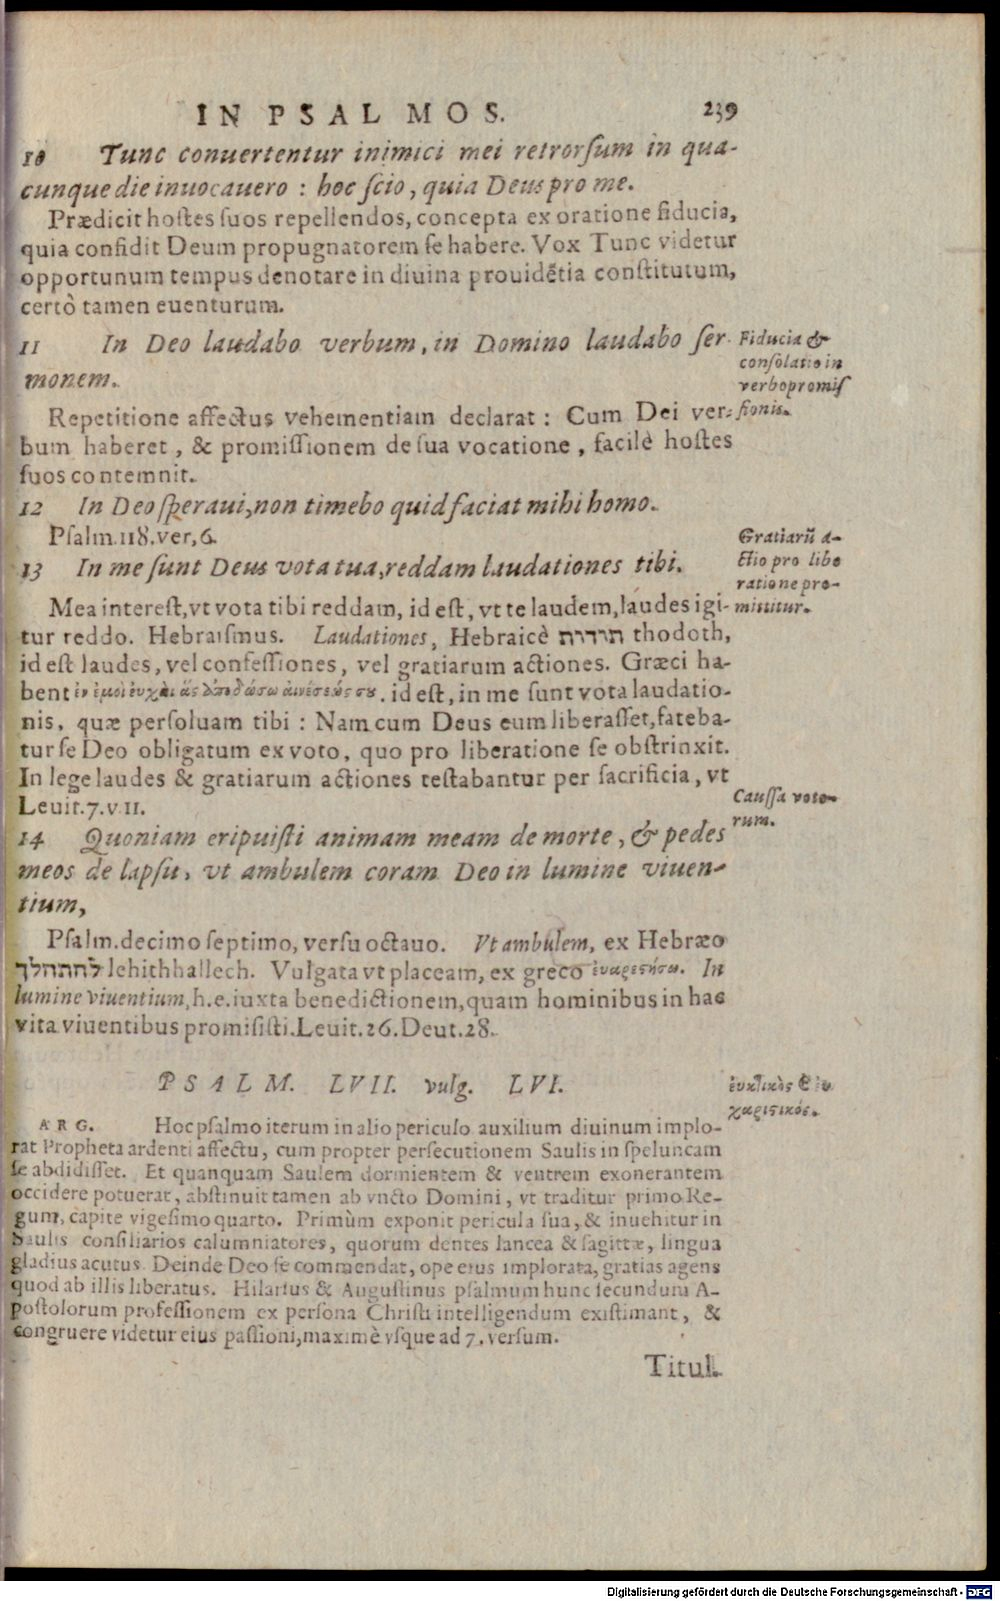 IN PSALMOS. 239
10 Tunc conuertentur inimici mei retrorſum in qua-
cunque die inuocauero : hoc ſcio, quia Deus pro me.
Prædicit hoſtes ſuos repellendos, concepta ex oratione fiducia,
quia confidit Deum propugnatorem ſe habere. Vox Tunc videtur
opportunum tempus denotare in diuina prouidẽtia conſtitutum,
certò tamen euenturum.
11 In Deo laudabo verbum, in Domino laudabo ſer
monem.
Fiducia &
conſolatio in
verbo promiſ
ſionis.
Repetitione affectus vehementiam declarat : Cum Dei ver-
bum haberet, & promiſſionem de ſua vocatione, facilè hoſtes
ſuos contemnit.
12 In Deo ſperaui, non timebo quid faciat mihi homo.
Pſalm.118.ver,6.
13 In me ſunt Deus vota tua, reddam laudationes tibi.
Gratiarũ a-
ctio pro libe
ratione pro-
mittitur.
Mea intereſt, vt vota tibi reddam, id eſt, vt te laudem, laudes igi-
tur reddo. Hebraiſmus. Laudationes, Hebraicè תודות thodoth,
id eſt laudes, vel confeſſiones, vel gratiarum actiones. Græci ha-
bent ἐν ἐμοὶ ἐυχαὶ ἃς ἀποδώσω αἰνέσεώς σου. id eſt, in me ſunt vota laudatio-
nis, quæ perſoluam tibi : Nam cum Deus eum liberaſſet, fateba-
tur ſe Deo obligatum ex voto, quo pro liberatione ſe obſtrinxit.
In lege laudes & gratiarum actiones teſtabantur per ſacrificia, vt
Leuit.7.v.11.
Cauſſa voto-
rum.
14 Quoniam eripuiſti animam meam de morte, & pedes
meos de lapſu, vt ambulem coram Deo in lumine viuen-
tium,
Pſalm.decimo ſeptimo, verſu octauo. Vt ambulem, ex Hebræo
להתהלך lehithhallech. Vulgata vt placeam, ex greco ἐυαρεστήσω. In
lumine viuentium, h.e.iuxta benedictionem, quam hominibus in hac
vita viuentibus promiſiſti. Leuit.26.Deut.28.
PSALM. LVII. vulg. LVI.
ἐυκτικὸς & ἐυ
χαριστικός.
ARG. Hoc pſalmo iterum in alio periculo auxilium diuinum implo-
rat Propheta ardenti affectu, cum propter perſecutionem Saulis in ſpeluncam
ſe abdidiſſet. Et quanquam Saulem dormientem & ventrem exonerantem
occidere potuerat, abſtinuit tamen ab vncto Domini, vt traditur primo Re-
gum, capite vigeſimo quarto. Primùm exponit pericula ſua, & inuehitur in
Saulis conſiliarios calumniatores, quorum dentes lancea & ſagittæ, lingua
gladius acutus. Deinde Deo ſe commendat, ope eius implorata, gratias agens
quod ab illis liberatus. Hilarius & Auguſtinus pſalmum hunc ſecundum A-
poſtolorum profeſſionem ex perſona Chriſti intelligendum exiſtimant, &
congruere videtur eius paſſioni, maximè vſque ad 7. verſum.
Titul.
Digitalisierung gefördert durch die Deutsche Forschungsgemeinschaft - DFG